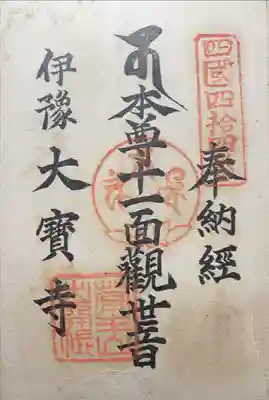 四國四拾四
奉納經
本尊十一面觀世音
伊豫
大寶寺